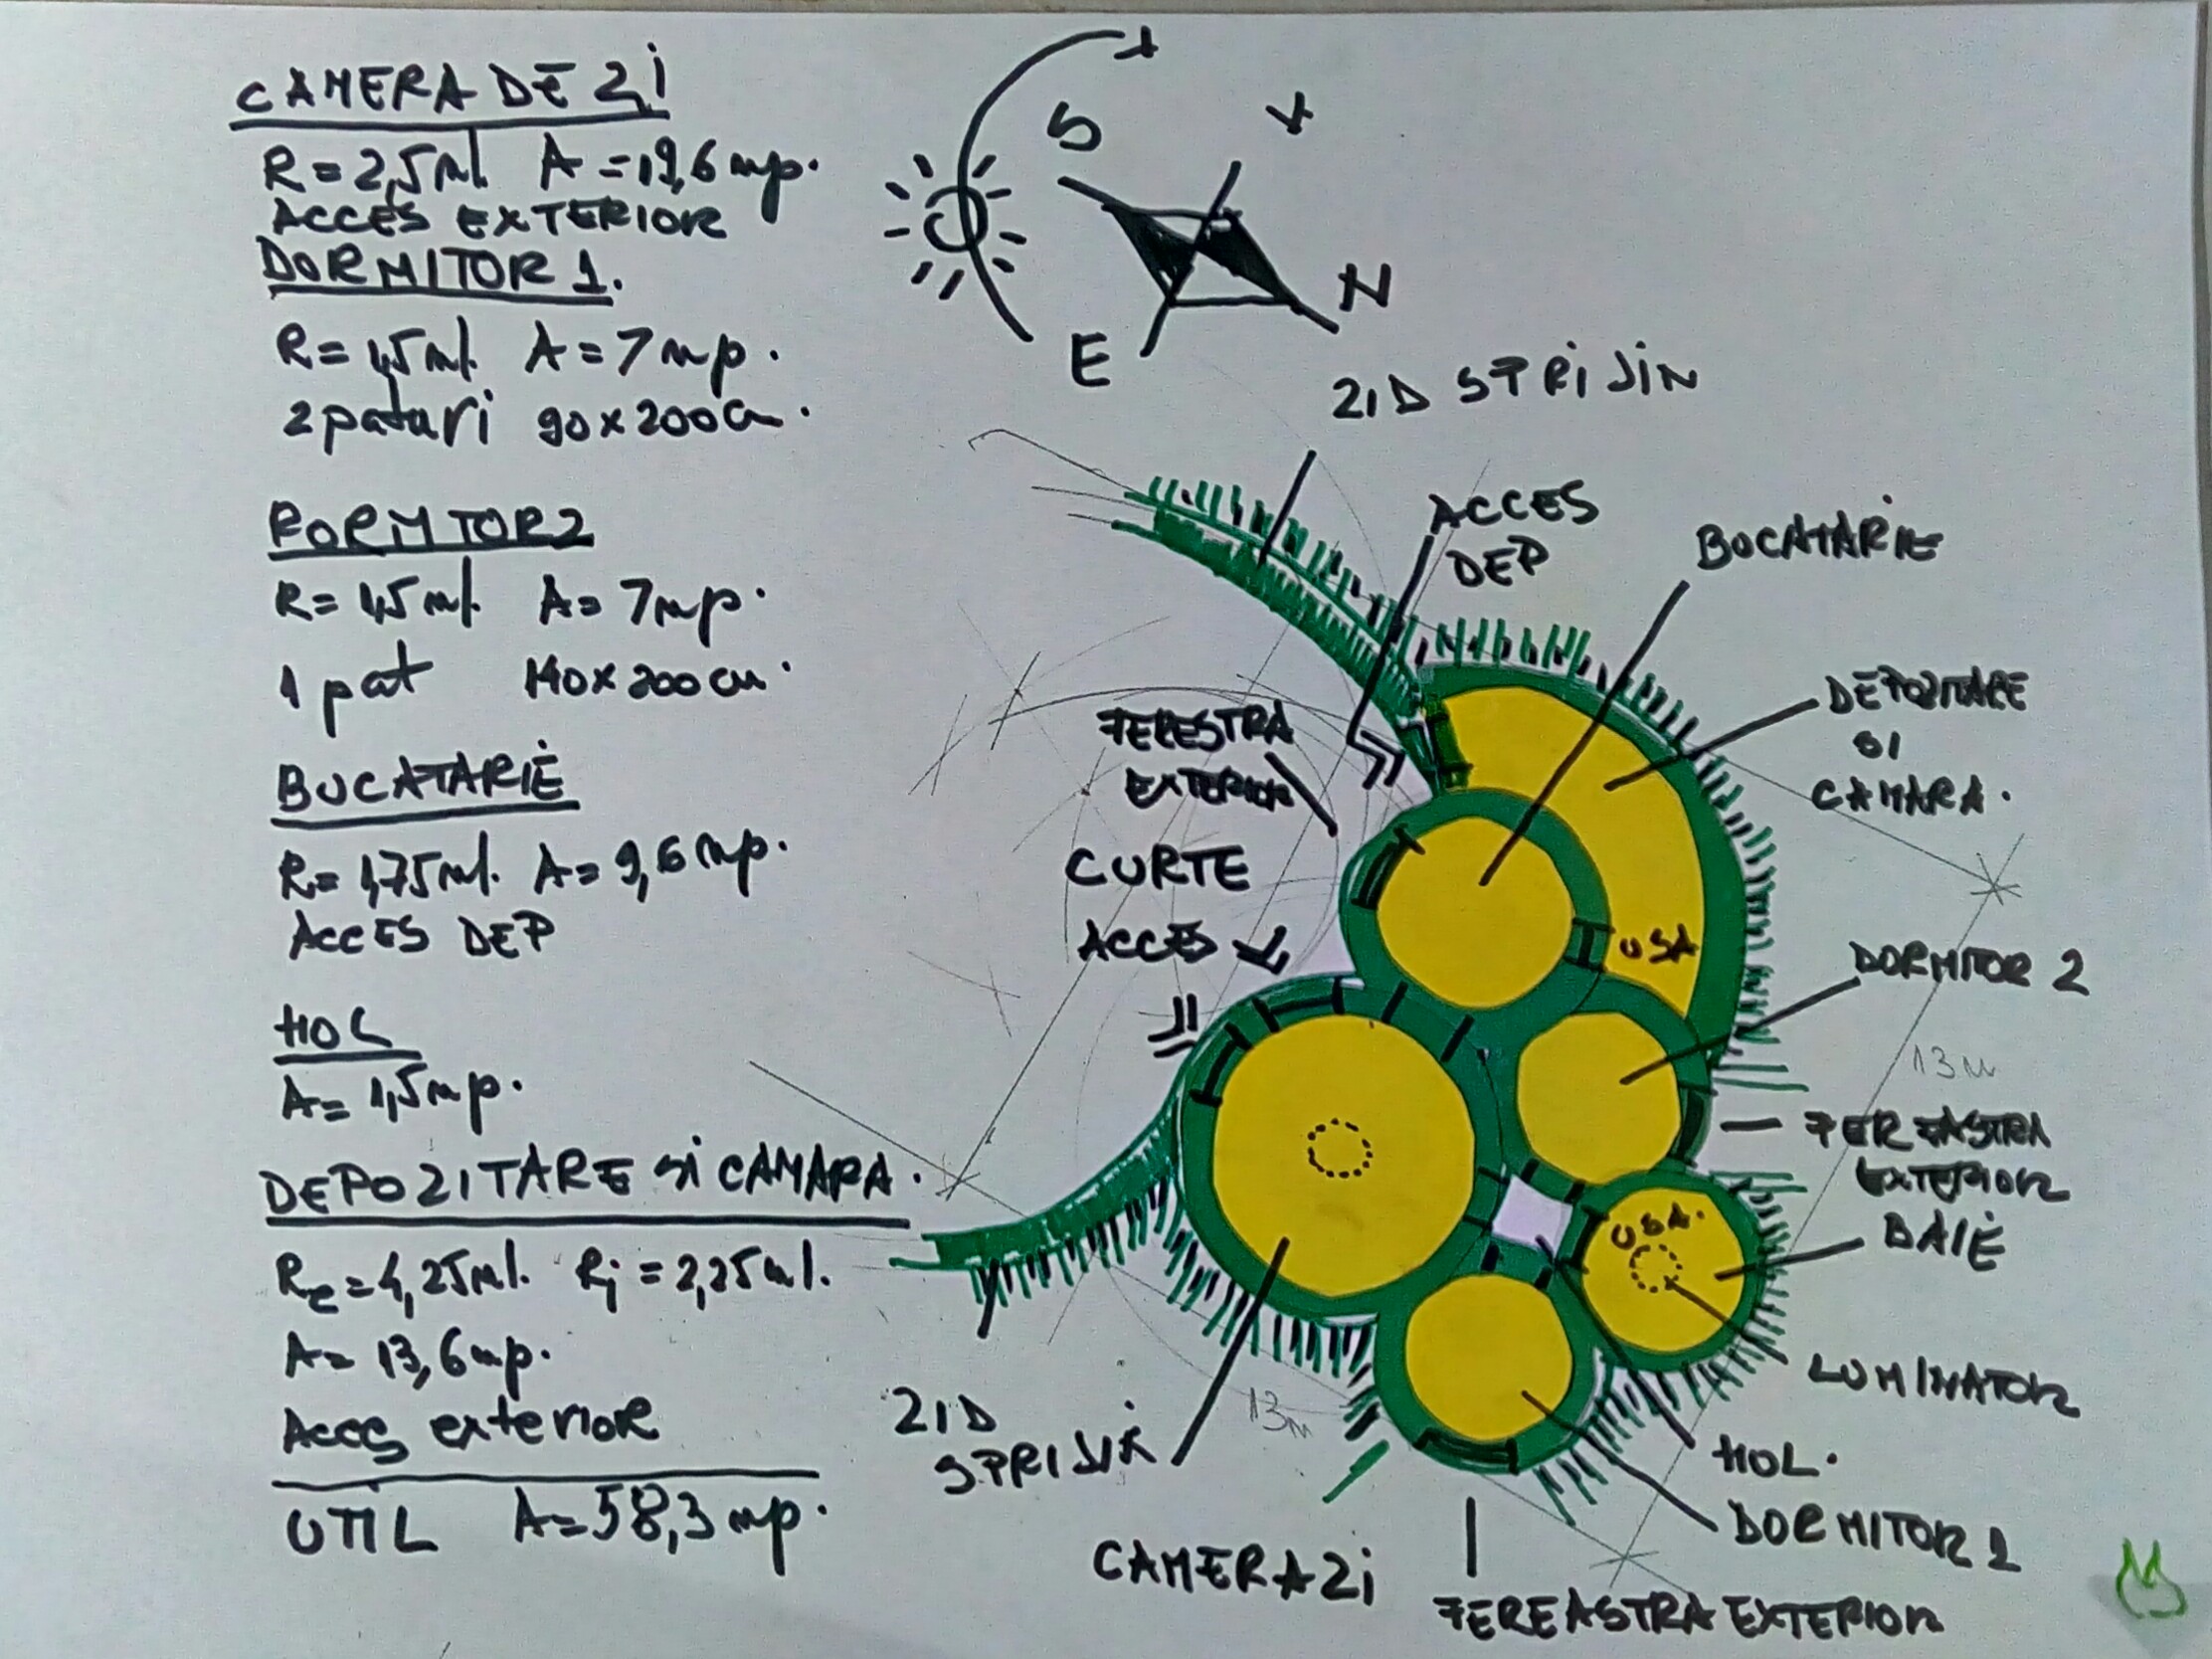 CAMERA DE ZI
R=2,5ml A=19,6 mp.
ACCES EXTERIOR
DORMITOR 1.
R=1,5ml. A=7mp.
2 paturi 90x200cm.
DORMITOR 2
R=1,5ml. A=7mp.
1 pat 140x200cm.
BUCATARIE
R=1,75ml. A=9,6 mp.
ACCES DEP
HOL
A=1,5mp.
DEPOZITARE SI CAMARA.
Re=4,25ml. Ri=2,25ml.
A=13,6mp.
Acces exterior
UTIL A=58,3 mp.
S
V
E
N
ZID SPRIJIN
ACCES
DEP
BUCATARIE
DEPOZITARE
SI
CAMARA.
FERESTRA
EXTERIOR
CURTE
ACCES
USA
DORMITOR 2
13m
FEREASTRA
EXTERIOR
BAIE
USA.
LUMINATOR
HOL.
DORMITOR 1
ZID
SPRIJIN
13m
CAMERA ZI
FEREASTRA EXTERIOR